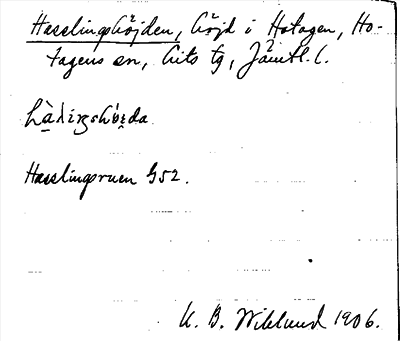 Hasslingshöjden, höjd i Hotagen, Ho-
tagens sn, Lits tg, Jämtl. l.
Hasslingsruen G52.
K. B. Wiklund 1906.